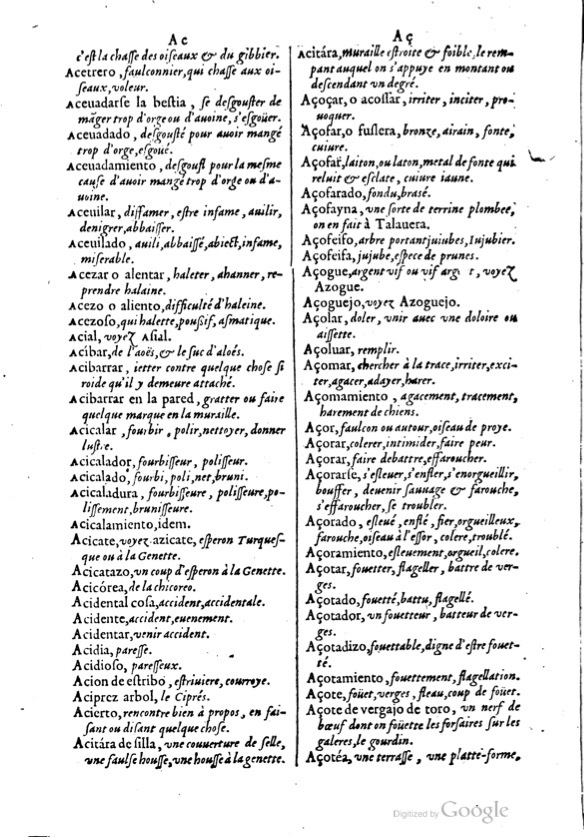 Ac
c'est la chasse des oiseaux & du gibbier.
Acetrero, faulconnier, qui chasse aux oi-
seaux, voleur.
Aceuadarse la bestia, se desgouster de
mãger trop d'orge ou d'auoine, s'esgoüer.
Aceuadado, desgousté pour auoir mangé
trop d'orge, esgoué.
Aceuadamiento, desgoust pour la mesme
cause d'auoir mangé trop d'orge ou d'a-
uoine.
Aceuilar, diffamer, estre infame, auilir,
denigrer, abbaisser.
Aceuilado, auili, abbaissé, abiect, infame,
miserable.
Acezar o alentar, haleter, ahanner, re-
prendre halaine.
Acezo o aliento, difficulté d'haleine.
Acezoso, qui halette, poußif, asmatique.
Acial, voyez Asial.
Acíbar, de l'aoës, & le suc d'aloés.
Acibarrar, ietter contre quelque chose si
roide qu'il y demeure attaché.
Acibarrar en la pared, gratter ou faire
quelque marque en la muraille.
Acicalar, fourbir, polir, nettoyer, donner
lustre.
Acicalador, fourbisseur, polisseur.
Acicalado, fourbi, poli, net, bruni.
Acicaladura, fourbisseure, polisseure, po-
lissement, brunisseure.
Acicalamiento, idem.
Acicate, voyez azicate, esperon Turques-
que ou à la Genette.
Acicatazo, un coup d'esperon à la Genette.
Acicórea, de la chicoreo.
Acidental cosa, accident, accidentale.
Acidente, accident, euenement.
Acidentar, venir accident.
Acidia, paresse.
Acidioso, paresseux.
Acion de estribo, estriuiere, courroye.
Aciprez arbol, le Ciprés.
Acierto, rencontre bien à propos, en fai-
sant ou disant quelque chose.
Acitára de silla, une couuerture de selle,
une faulse housse, une housse à la genette.
Aç
Acitára, muraille estroite & foible, le rem-
pant auquel on s'appuye en montant ou
descendant un degré.
Açoçar, o acossar, irriter, inciter, pro-
uoquer.
Açofar, o fuslera, bronze, airain, fonte,
cuiure.
Açofar, laiton, ou laton, metal de fonte qui
reluit & esclate, cuiure iaune.
Açofarado, fondu, brasé.
Açofayna, une sorte de terrine plombee,
on en fait à Talauera.
Açofeifo, arbre portant juiubes, Iujubier.
Açofeifa, jujube, espece de prunes.
Açogue, argent vif ou vif arg t, voyez
Azogue.
Açoguejo, voyez Azoguejo.
Açolar, doler, unir auec une doloire ou
aissette.
Açoluar, remplir.
Açomar, chercher à la trace, irriter, exci-
ter, agacer, adayer, harer.
Açomamiento, agacement, tracement,
harement de chiens.
Açor, faulcon ou autour, oiseau de proye.
Açorar, colerer, intimider, faire peur.
Açorar, faire debattre, effaroucher.
Açorarse, s'esleuer, s'enfler, s'enorgueillir,
bouffer, deuenir sauuage & farouche,
s'effaroucher, se troubler.
Açorado, esleué, enflé, fier, orgueilleux,
farouche, oiseau à l'essor, colere, troublé.
Açoramiento, esleuement, orgueil, colere.
Açotar, fouetter, flageller, battre de ver-
ges.
Açotado, fouetté, battu, flagellé.
Açotador, un fouetteur, batteur de ver-
ges.
Açotadizo, fouettable, digne d'estre fouet-
té.
Açotamiento, fouettement, flagellation.
Açote, foüet, verges, fleau, coup de foüet.
Açote de vergajo de toro, un nerf de
bœuf dont on foüette les forsaires sur les
galeres, le gourdin.
Açotéa, une terrasse, une platte-forme,
Digitized by Google